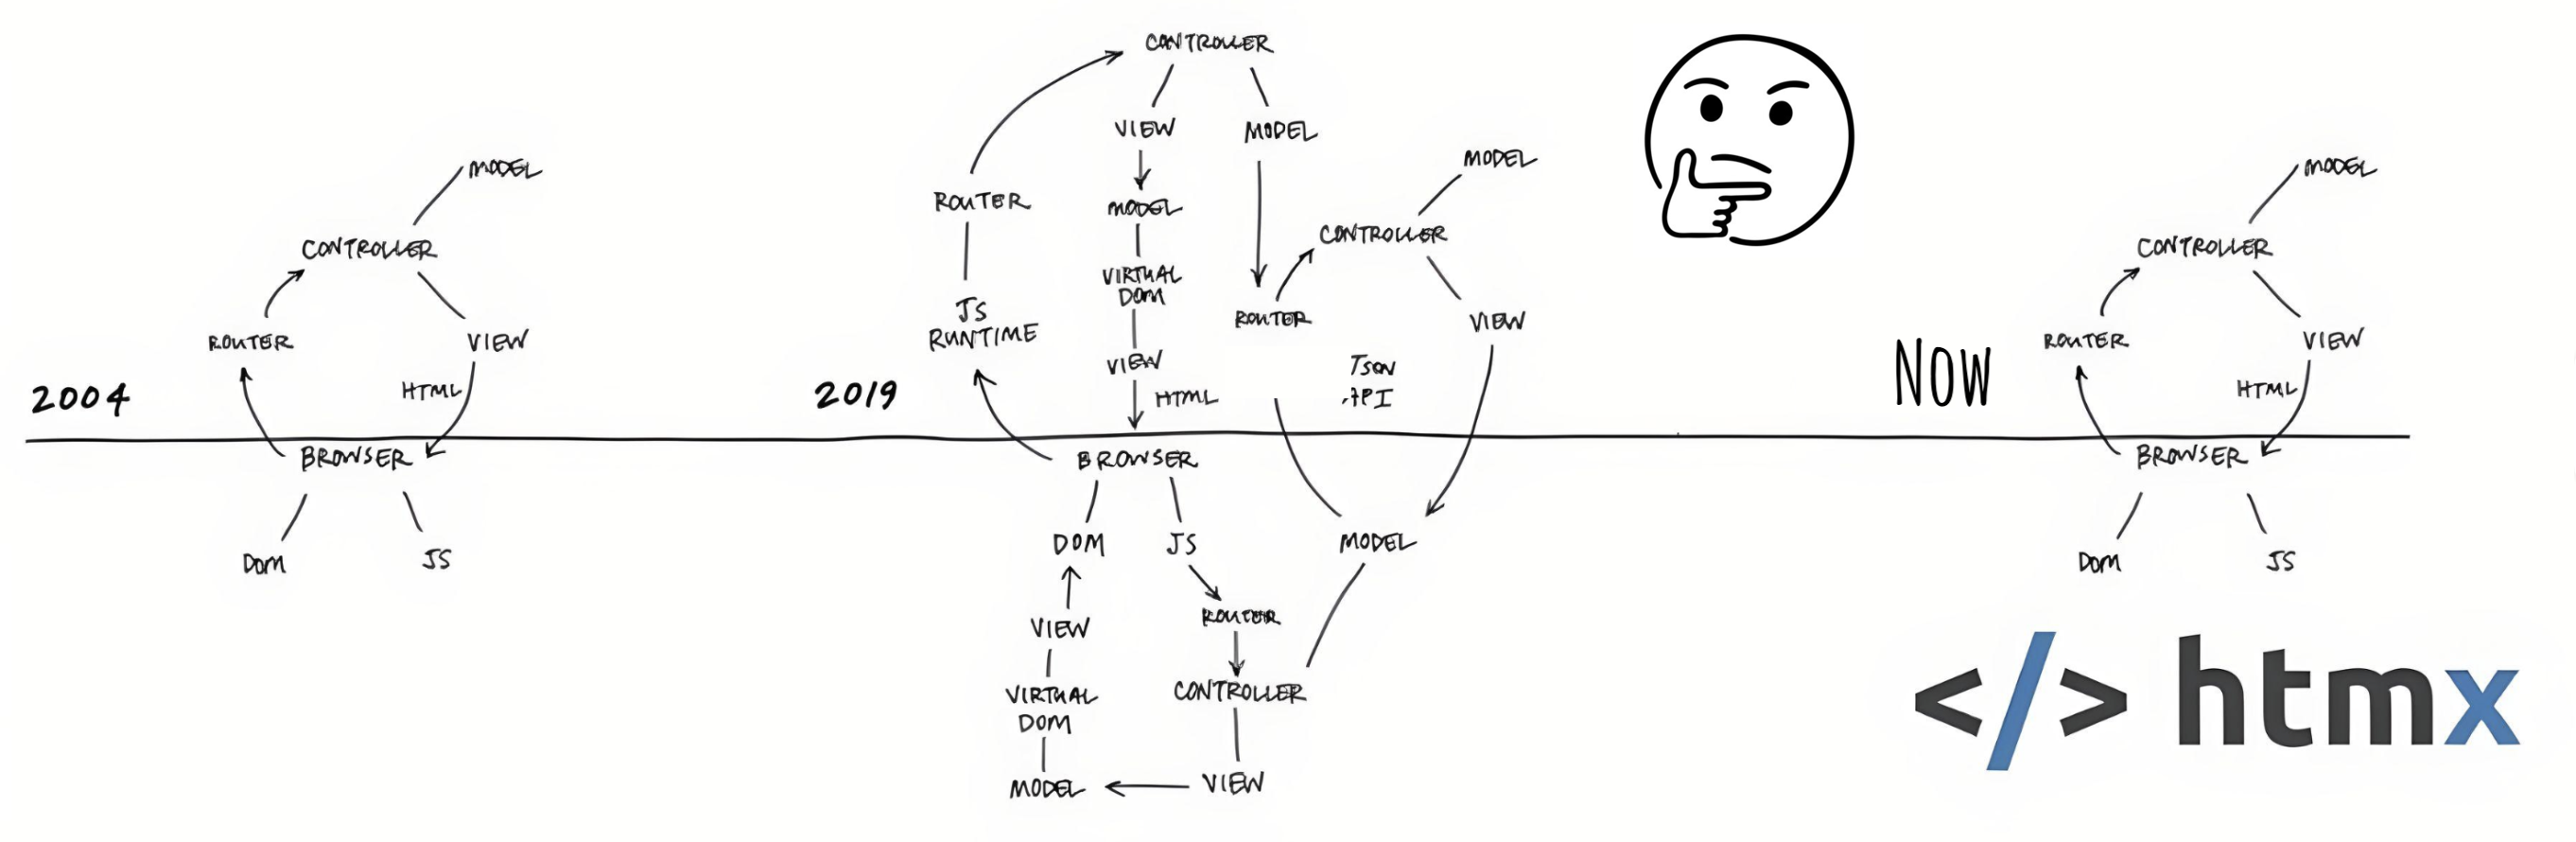 2004
MODEL
CONTROLLER
ROUTER
VIEW
HTML
BROWSER
DOM
JS
2019
CONTROLLER
VIEW
MODEL
ROUTER
MODEL
VIRTUAL
DOM
JS
RUNTIME
VIEW
HTML
MODEL
CONTROLLER
ROUTER
VIEW
JSON
API
BROWSER
DOM
JS
MODEL
VIEW
ROUTER
VIRTUAL
DOM
CONTROLLER
MODEL
VIEW
NOW
MODEL
CONTROLLER
ROUTER
VIEW
HTML
BROWSER
DOM
JS
</> htmx